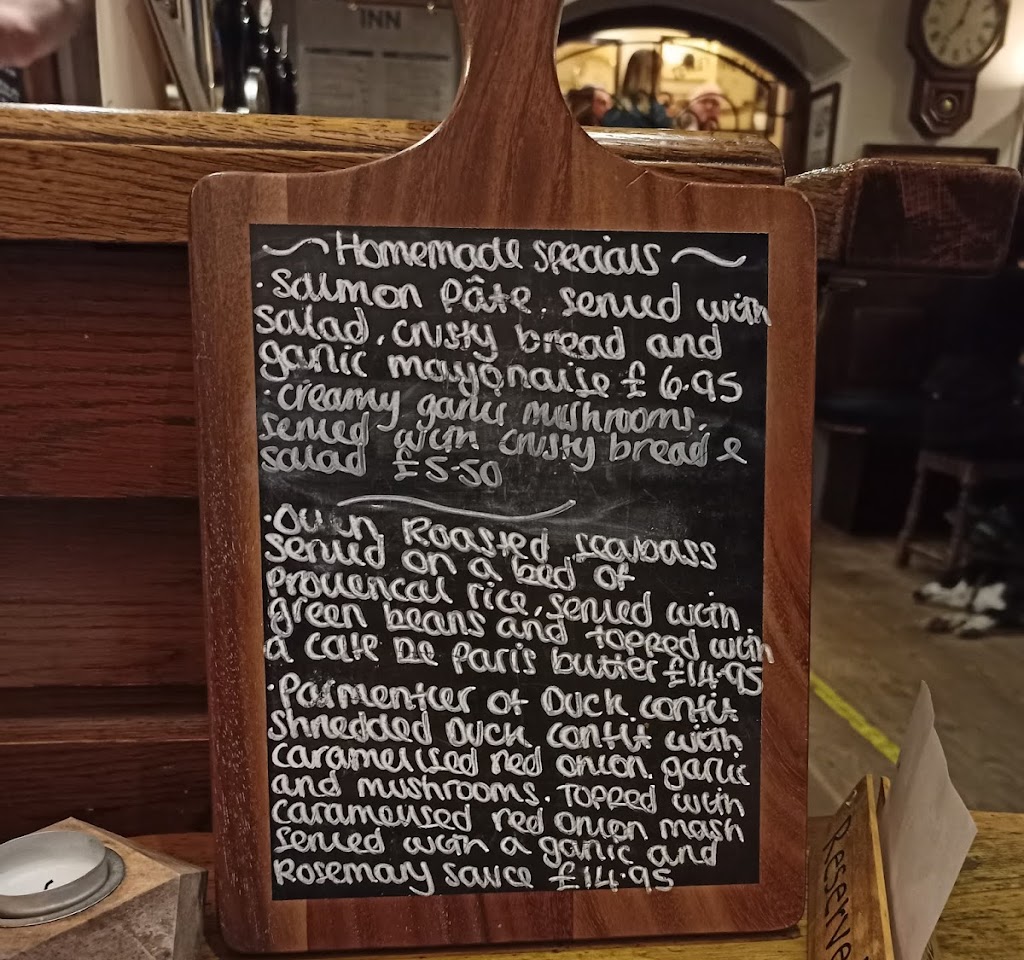 INN
Homemade specials
· Salmon Pâte, served with
salad, crusty bread and
garlic mayonaise £6.95
· creamy garlic mushrooms,
served with crusty bread &
salad £5.50
· Oven Roasted seabass
served on a bed of
Provencal rice, served with
green beans and topped with
a cafe De Paris butter £14.95
· Parmentier of Duck confit
shredded Duck confit with
caramelised red onion, garlic
and mushrooms. Topped with
caramelised red onion mash
served with a garlic and
Rosemary sauce £14.95
Reserve